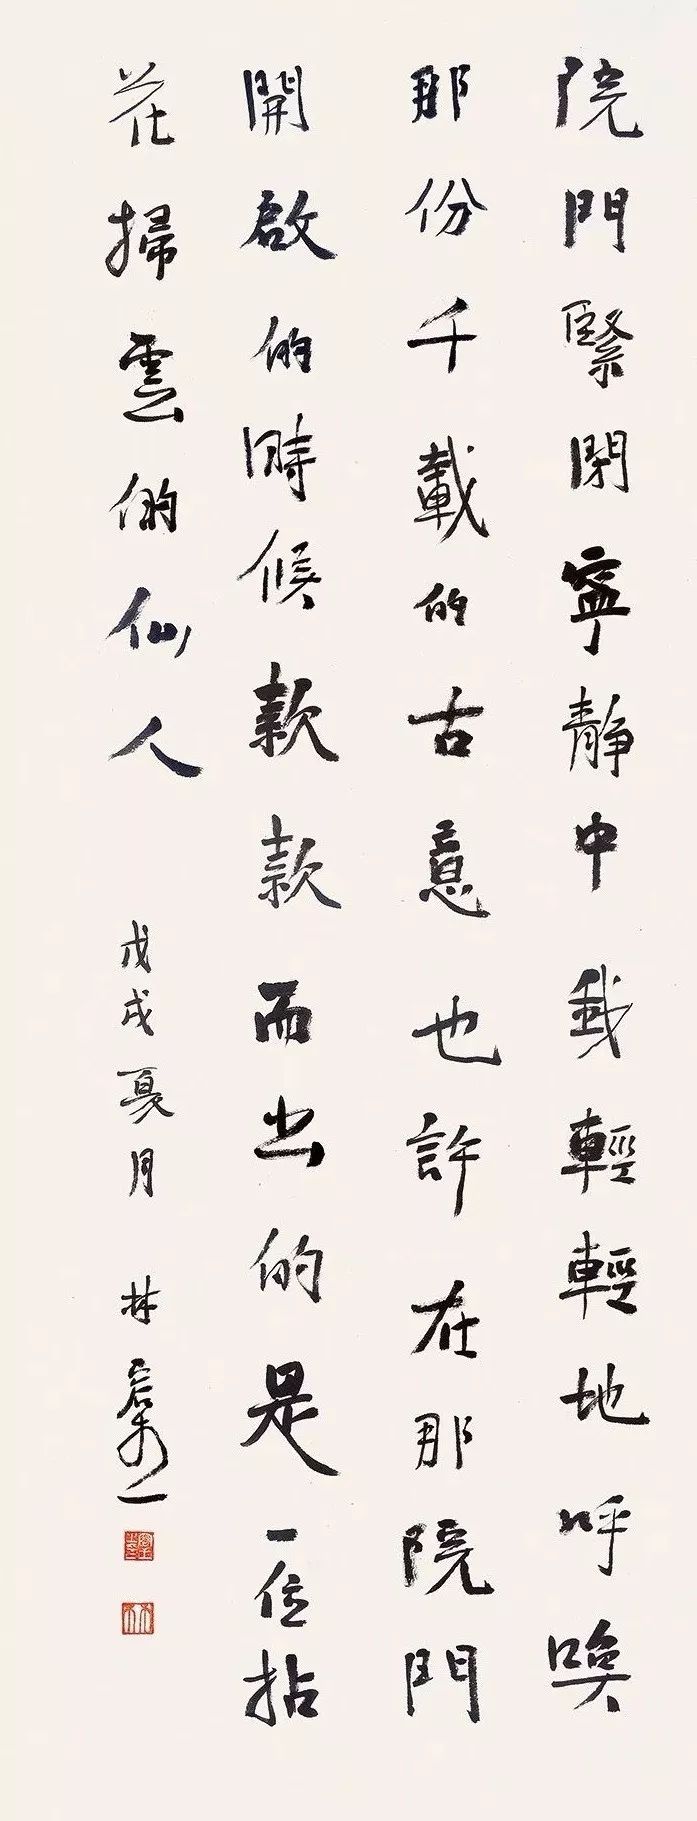 院門緊閉寧靜中我輕輕地呼喚
那份千載的古意也許在那院門
開啟的時候款款而出的是一位拈
花掃雲的仙人
戊戌夏月 林